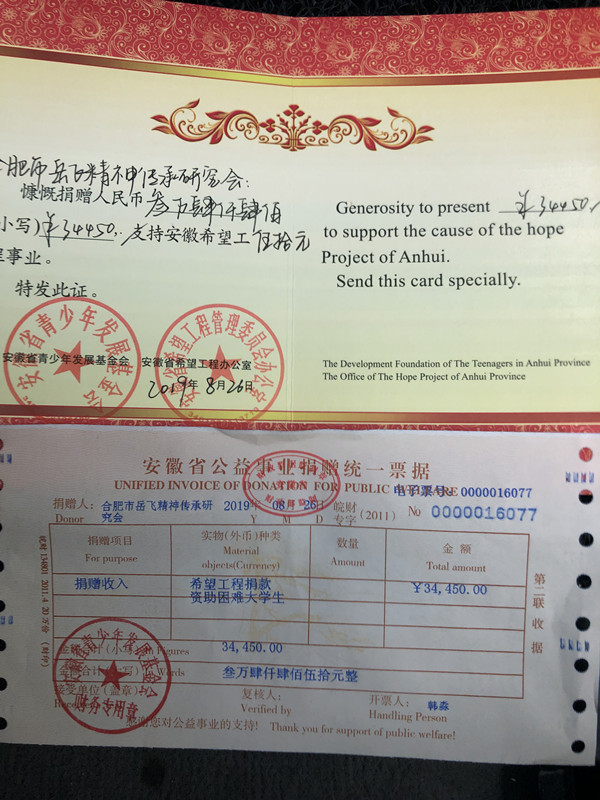 合肥市岳飞精神传承研究会：
慷慨捐赠人民币叁万肆仟肆佰
小写)￥34450，支持安徽希望工伍拾元
程事业。
特发此证。
安徽省青少年发展基金会
安徽省希望工程办公室
2019年8月26日
Generosity to present ￥34450，
to support the cause of the hope
Project of Anhui.
Send this card specially.
The Development Foundation of The Teenagers in Anhui Province
The Office of The Hope Project of Anhui Province
安徽省公益事业捐赠统一票据
UNIFIED INVOICE OF DONATION FOR PUBLIC WELFARE
电子票号:0000016077
捐赠人: 合肥市岳飞精神传承研究会 2019年 08月 26日 皖财专字(2011) No 0000016077
Donor Y M D
捐赠项目 实物(外币)种类 数量 金额
For purpose Material objects(Currency) Amount Total amount
捐赠收入 希望工程捐款 ￥34,450.00
资助困难大学生
34,450.00
Figures
叁万肆仟肆佰伍拾元整
Words
接受单位(盖章) 复核人: 开票人: 韩淼
Verified by Handling Person
感谢您对公益事业的支持! Thank you for support of public welfare!
第二联 收据
安徽省青少年发展基金会
财务专用章